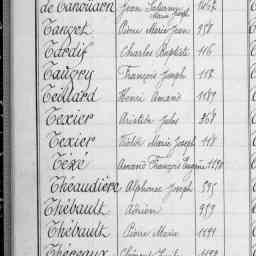 de Tanouarn Jean
Marie Joseph
Tanget Pierre Marie Jean 958
Tardif Charles Baptiste 116
Taugry François Joseph 117
Teillard Henri Amand 1189
Texier Aristide Jules 268
Texier Marie Joseph 118
Teze Amand François Eugène 1190
Théaudière Alphonse Joseph 595
Thébault Adrien 959
Thébault Pierre Marie 1191
Théreaux Clément